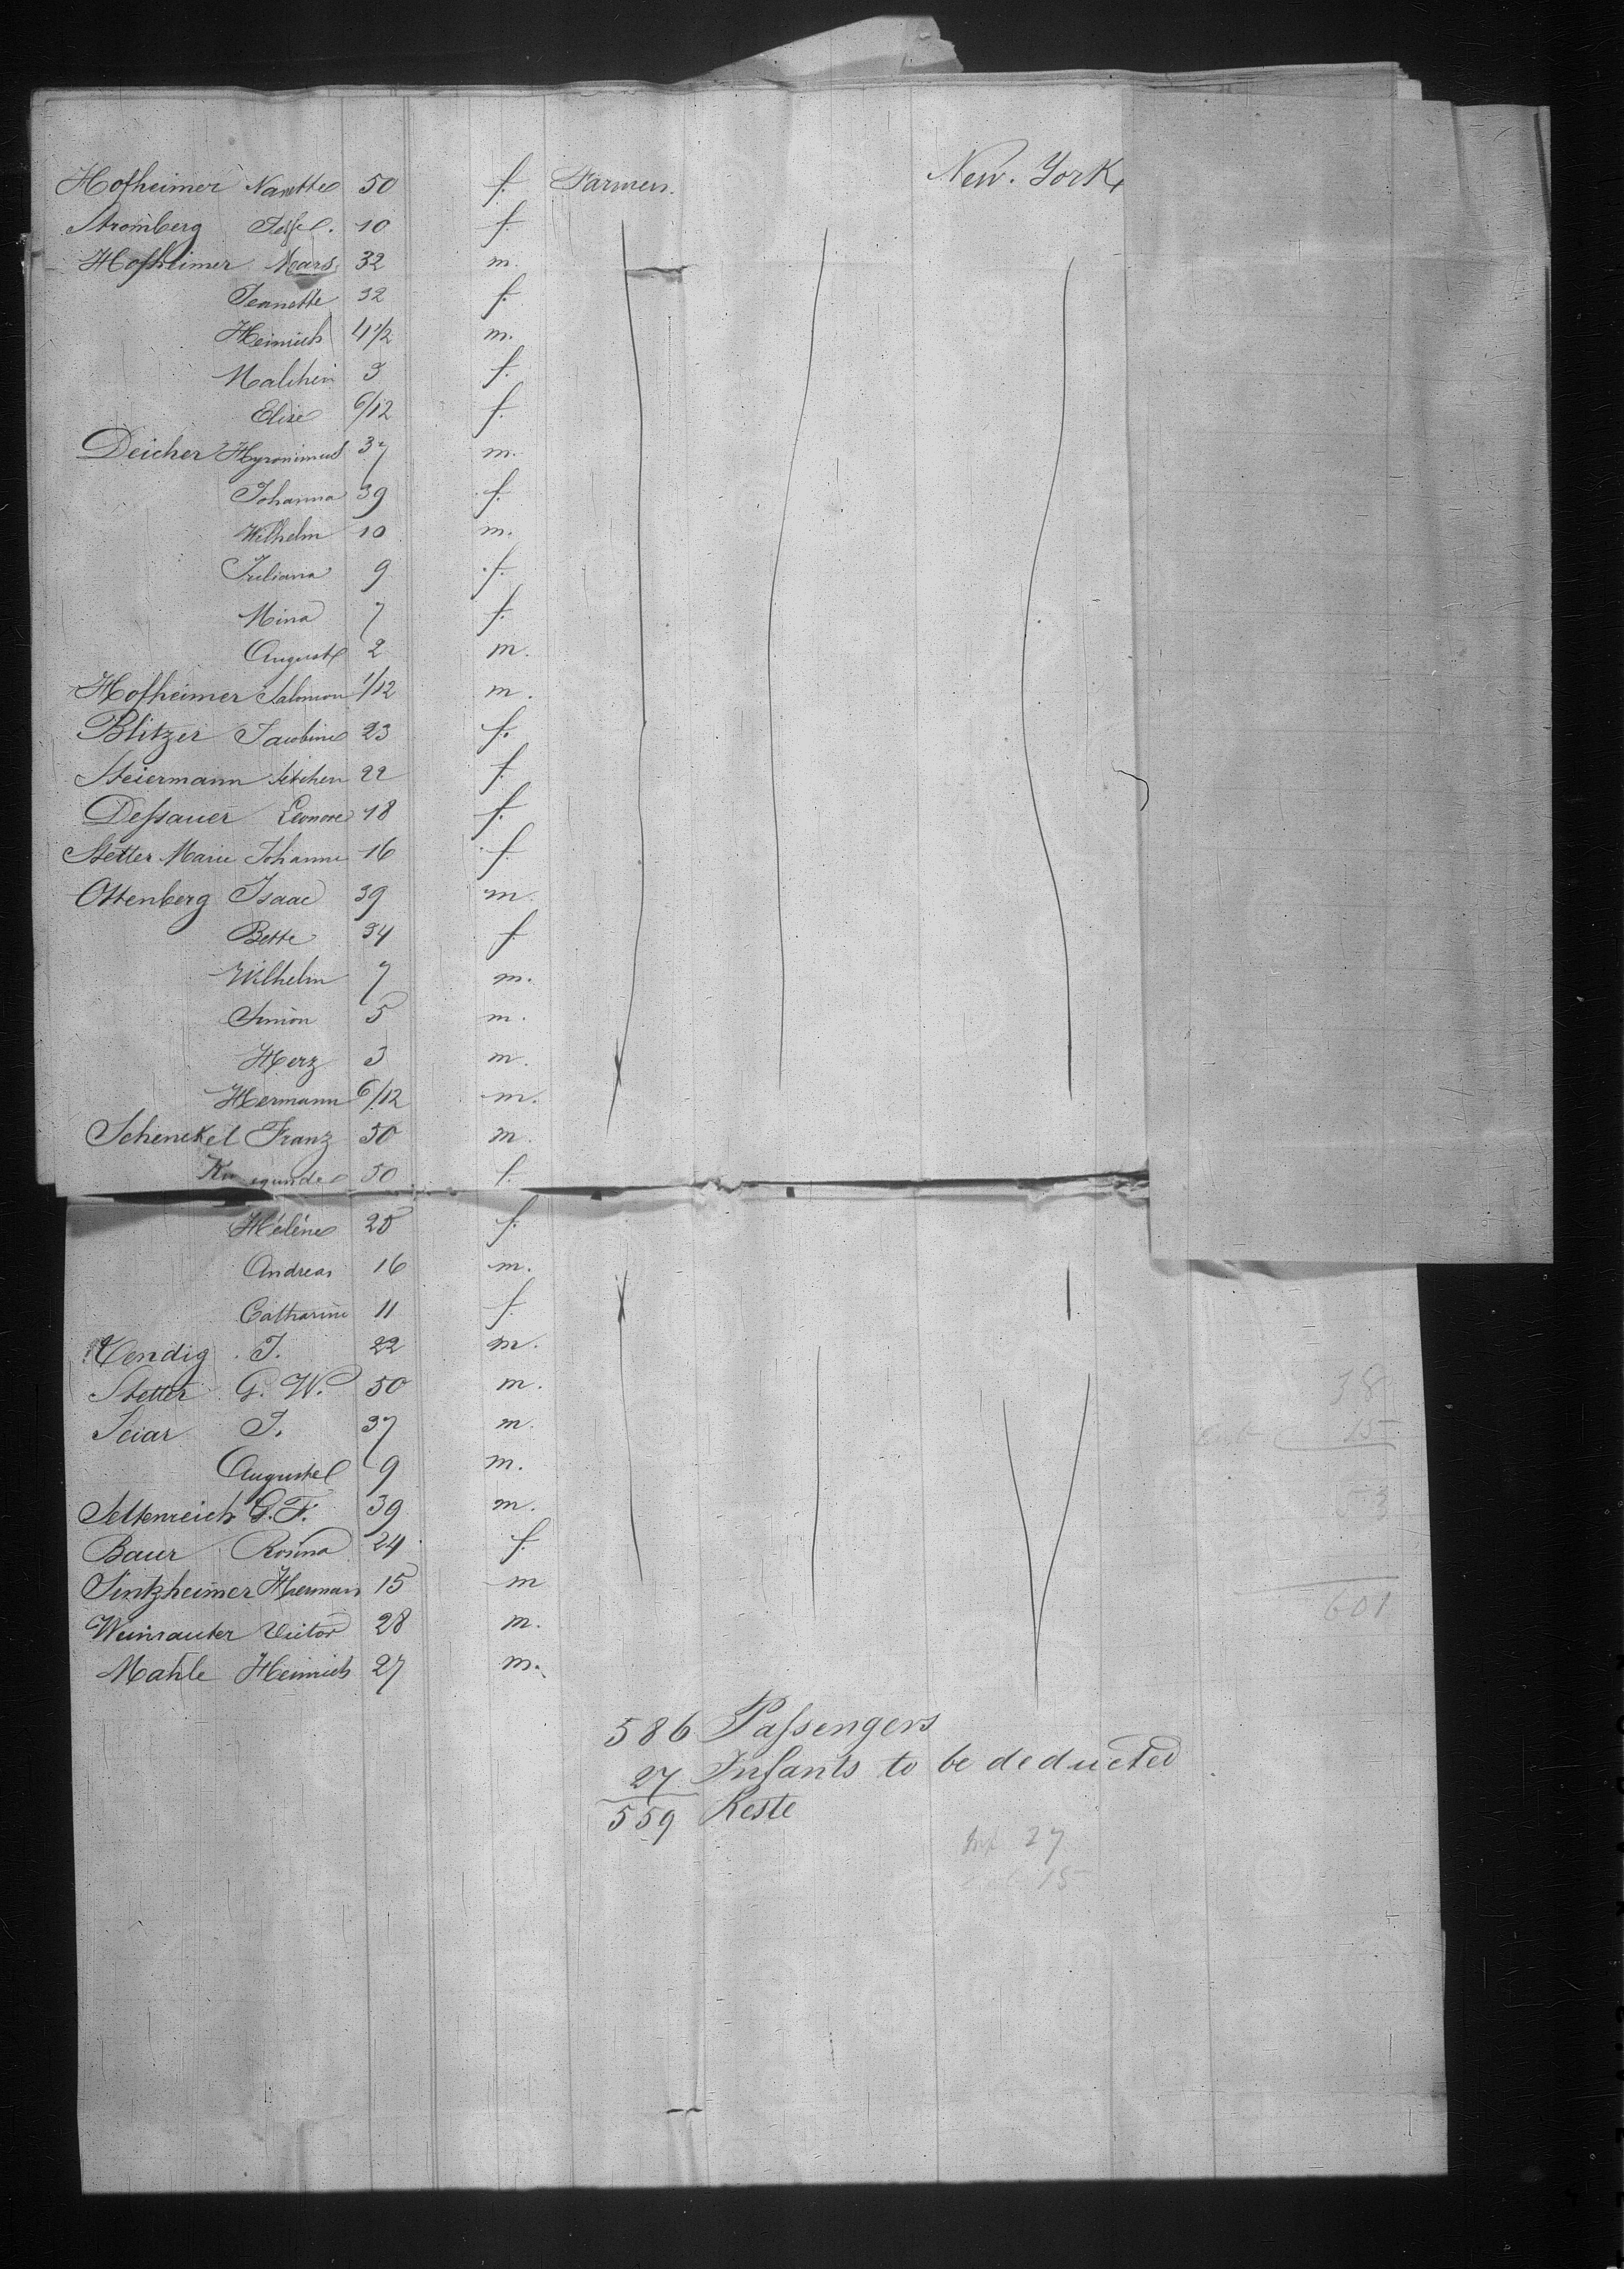 Hofheimer Nanette 50 f. Farmers. New-York
Stromberg 10 f.
Hofheimer Mars 32 m.
Jeanette 32 f.
Heinrich 4 1/2 m.
Malchen 3 f.
Elise 6/12 f.
Deicher Hyronimus 37 m.
Johanna 39 f.
Wilhelm 10 m.
Juliana 9 f.
Mina 7 f.
August 2 m.
Hofheimer Salomon 1/12 m.
Blitzer Jacobine 23 f.
Steiermann 22 f.
Deſsauer Leonore 18 f.
Stetter Marie Johanne 16 f.
Ottenberg Isaac 39 m.
Bette 34 f.
Wilhelm 7 m.
Simon 5 m.
Herz 3 m.
Hermann 6/12 m.
Schenckel Franz 50 m.
Ku egunde 50 f.
Hélène 25 f.
Andreas 16 m.
Catharine 11 f.
J. 22 m.
Stetter G. W. 50 m.
J. 37 m.
August 9 m.
Seltenreich G. F. 39 m.
Baur Rosina 24 f.
Sintzheimer Herman 15 m
Weinrauter Victor 28 m.
Mahle Heinrich 27 m.
586 Paſsengers
27 Infants to be deducted
559 Reste
Inf 27
15
38
15
53
601